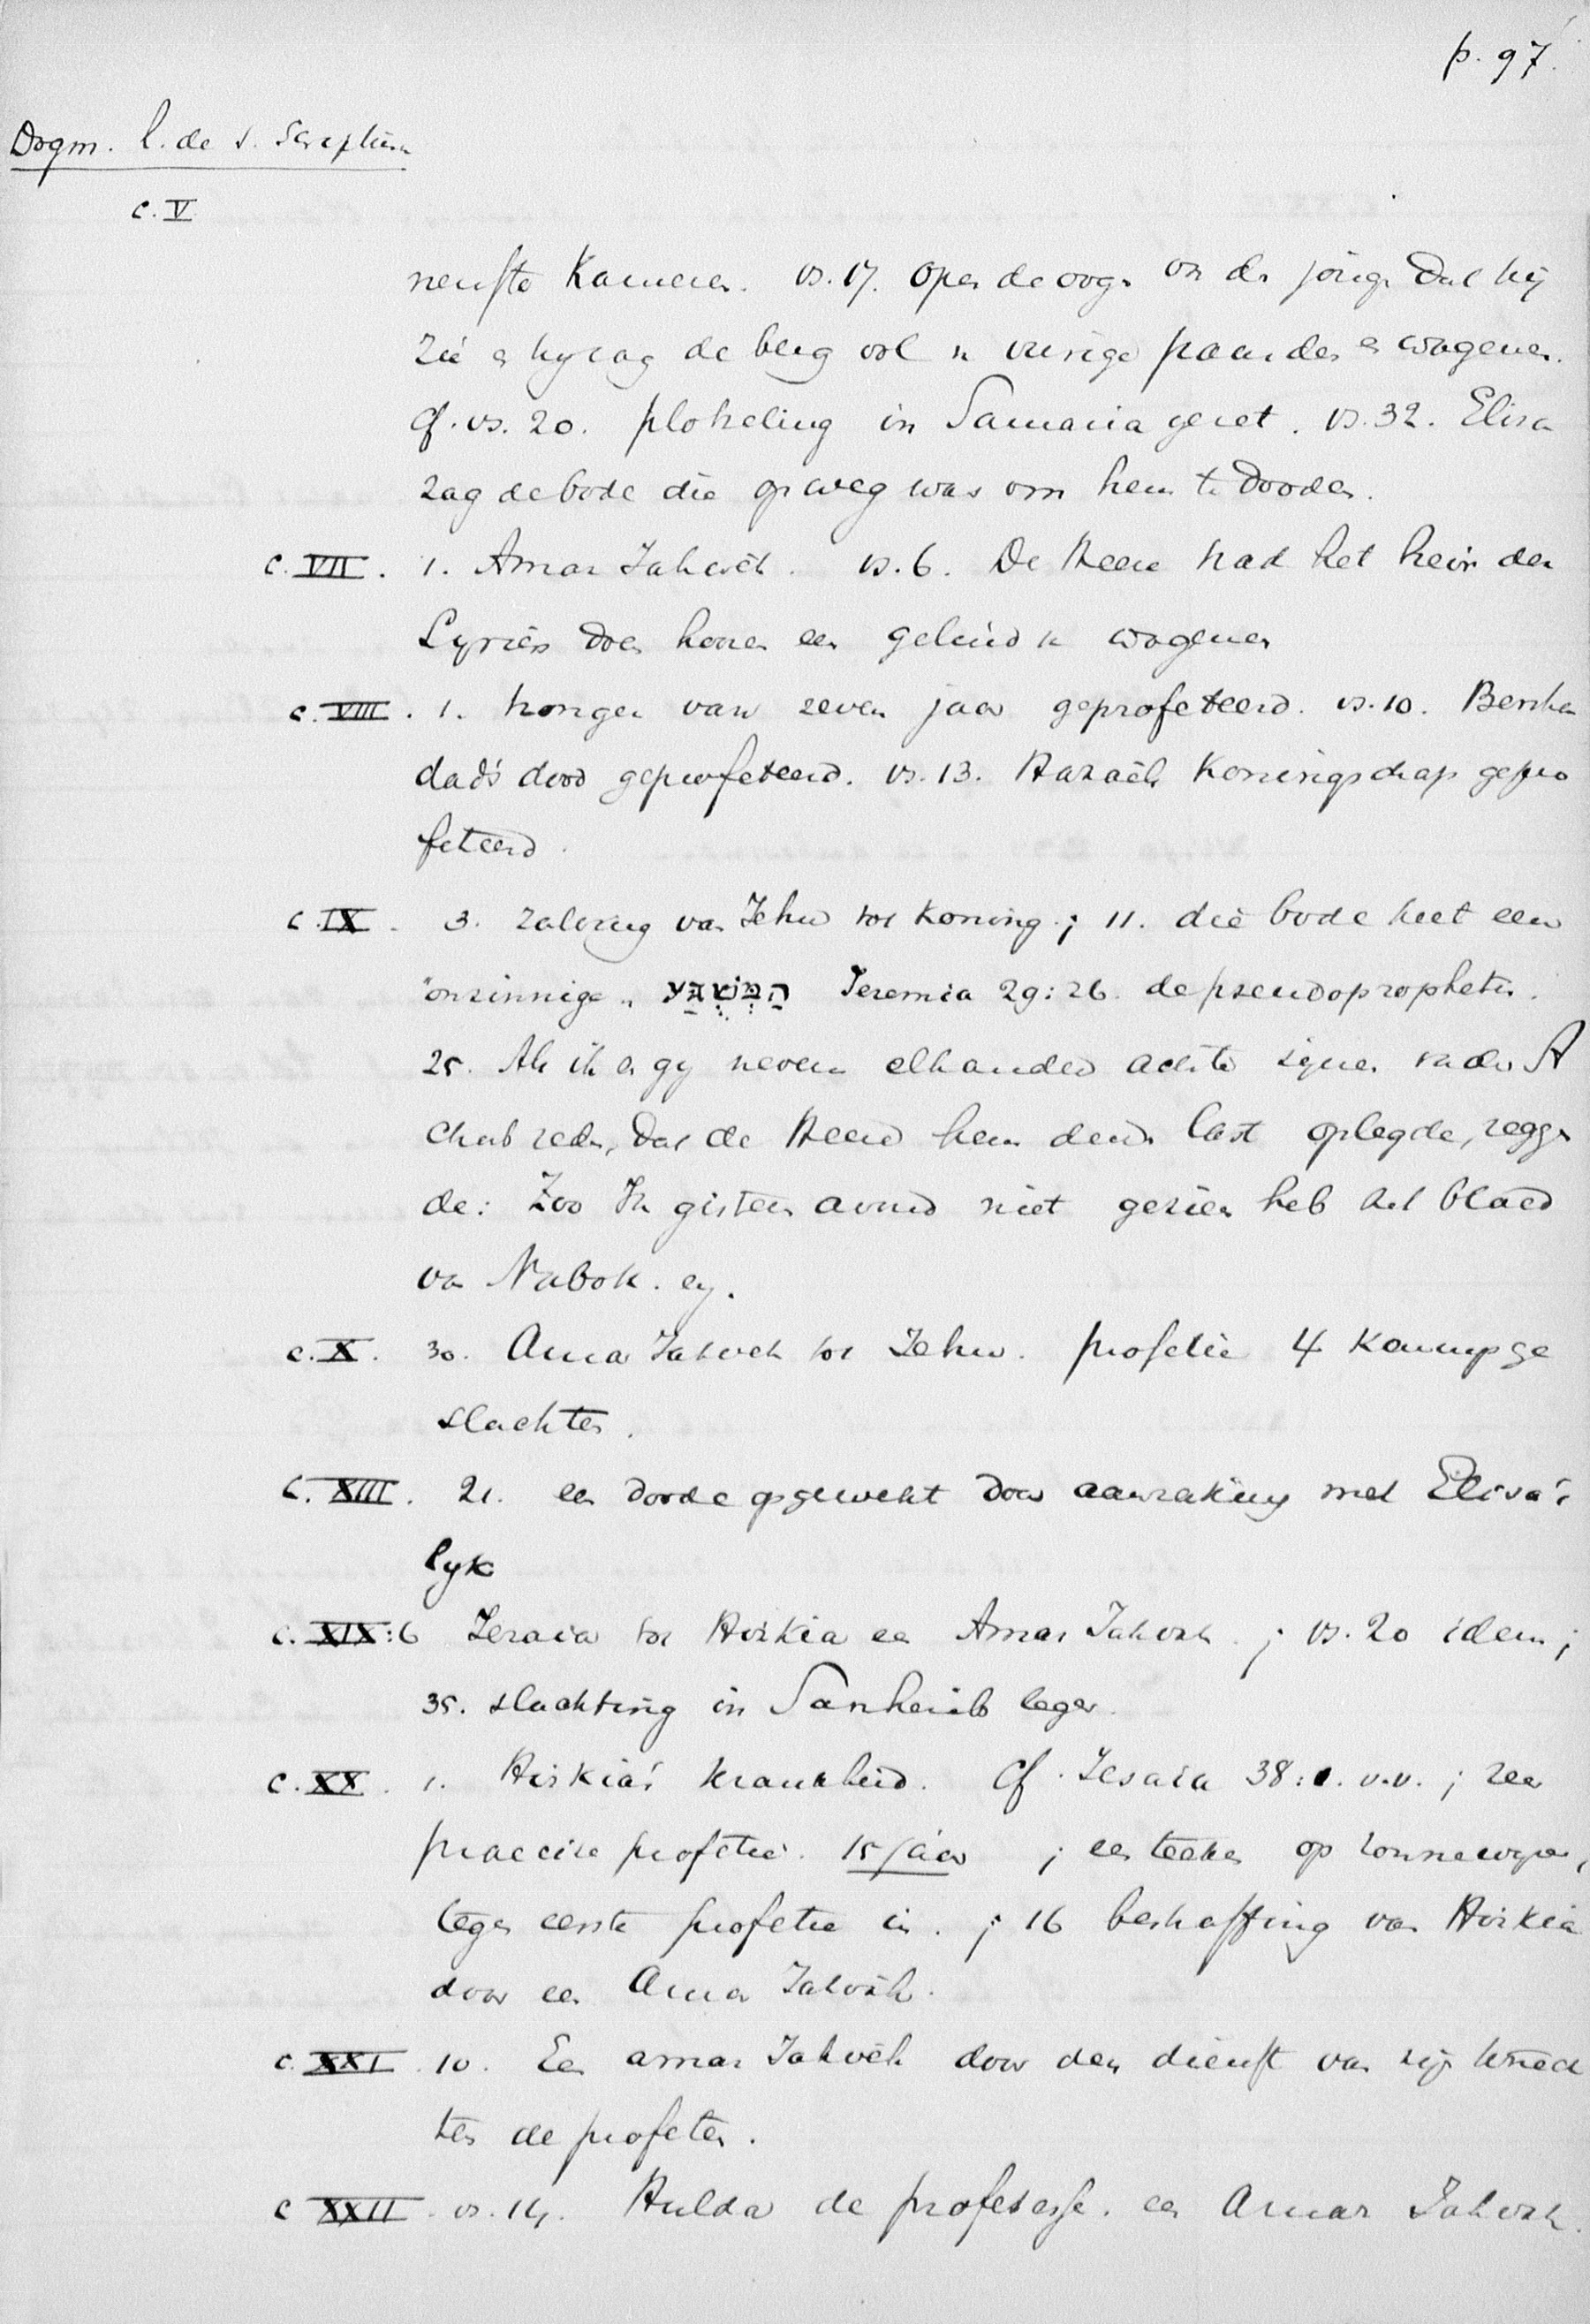 p. 97.
Dogm. l. de S. Scriptura
c. V
nenste Kameren. vs. 17. open de oogen van den jongen dat hij
zie en hij zag de berg vol van vurige paarden en wagenen.
cf. vs. 20. plotseling in Samaria gezet. vs. 32. Elisa
zag de bode die op weg was om hem te dooden.
c. VII. 1. Amar Jahveh. vs. 6. De Heere had het heir der
Syriërs doen hooren een geluid van wagenen
c. VIII. 1. honger van zeven jaar geprofeteerd. vs. 10. Benha
dad's dood geprofeteerd. vs. 13. Hazaëls Koningschap gepro
feteerd.
c. IX. 3. zalving van Jehu tot Koning; 11. die bode heet een
"onzinnige" הַמְשֻׁגָּע Jeremia 29:26. de pseudopropheten.
25. Als ik en gij nevens elkander achter zijnen vader A
chab reden, dat de Heere hem dezen last oplegde, zeggen
de: Zoo Ik gisteren avond niet gezien heb het bloed
van Naboth. enz.
c. X. 30. Amar Jahveh tot Jehu. profetie 4 Konings ge
slachten.
c. XIII. 21. een doode opgewekt door aanraking met Elisa's
lyk
c. XIX:6 Jesaia tot Hiskia een Amar Jahveh; vs. 20 idem;
35. slachting in Sanheribs leger.
c. XX. 1. Hiskia's krankheid. Cf. Jesaia 38:1. v.v.; zeer
praecise profetie. 15 jaar; een teeken op zonnewyzer,
tegen eerste profetie in.; 16 bestraffing van Hiskia
door een Amar Jahveh.
c. XXI 10. Een amar Jahveh door den dienst van zijn knech
ten de profeten.
c XXII. vs. 14. Hulda de profetesse. een Amar Jahveh.